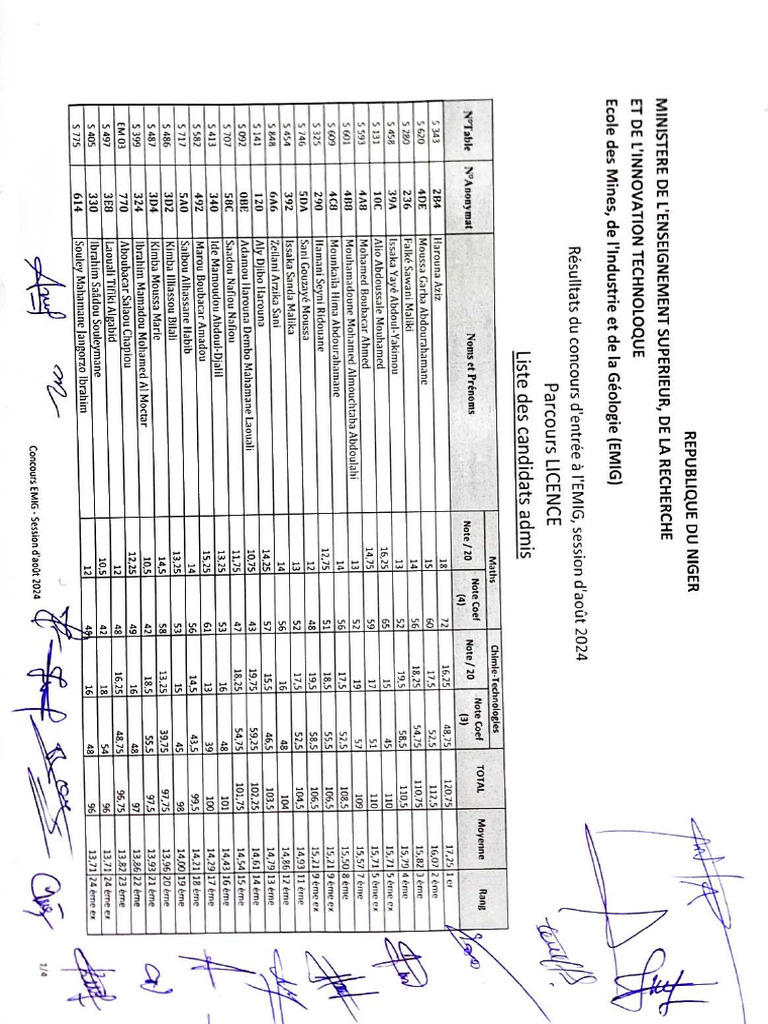 REPUBLIQUE DU NIGER
MINISTERE DE L'ENSEIGNEMENT SUPERIEUR, DE LA RECHERCHE
ET DE L'INNOVATION TECHNOLOQUE
Ecole des Mines, de l'Industrie et de la Géologie (EMIG)
Résultats du concours d'entrée à l'EMIG, session d'août 2024
Parcours LICENCE
Liste des candidats admis
Maths Chimie-Technologies
N°Table N°Anonymat Noms et Prénoms Note / 20 Note Coef (4) Note / 20 Note Coef (3) TOTAL Moyenne Rang
S 343 2B4 Harouna Aziz 18 72 16,25 48,75 120,75 17,25 1 er
S 620 4DE Moussa Garba Abdourahamane 15 60 17,5 52,5 112,5 16,07 2 ème
S 280 236 Falké Sawani Maliki 14 56 18,25 54,75 110,75 15,82 3 ème
S 458 39A Issaka Yayé Abdoul-Yakimou 13 52 19,5 58,5 110,5 15,79 4 ème
S 131 10C Alio Abdoussale Mouhamed 16,25 65 15 45 110 15,71 5 ème ex
S 593 4A8 Mohamed Boubacar Ahmed 14,75 59 17 51 110 15,71 5 ème ex
S 601 4B8 Mouhamadoune Mohamed Almouchtaba Abdoulahi 13 52 19 57 109 15,57 7 ème
S 609 4C8 Mounkaila Hima Abdourahamane 14 56 17,5 52,5 108,5 15,50 8 ème
S 325 290 Hamani Seyni Ridouane 12,75 51 18,5 55,5 106,5 15,21 9 ème ex
S 746 5DA Sani Gouzayé Moussa 12 48 19,5 58,5 106,5 15,21 9 ème ex
S 454 392 Issaka Sanda Malika 13 52 17,5 52,5 104,5 14,93 11 ème
S 848 6A6 Zeilani Arzika Sani 14 56 16 48 104 14,86 12 ème
S 141 120 Aly Djibo Harouna 14,25 57 15,5 46,5 103,5 14,79 13 ème
S 092 0BE Adamou Harouna Dembo Mahamane Laouali 10,75 43 19,75 59,25 102,25 14,61 14 ème
S 707 58C Saadou Nafiou Nofiou 11,75 47 18,25 54,75 101,75 14,54 15 ème
S 413 340 Ide Mamoudou Abdoul-Djalil 13,25 53 16 48 101 14,43 16 ème
S 582 492 Marou Boubacar Amadou 15,25 61 13 39 100 14,29 17 ème
S 717 5A0 Saibou Alhassane Habib 14 56 14,5 43,5 99,5 14,21 18 ème
S 486 3D2 Kimba Illiassou Bilali 13,25 53 15 45 98 14,00 19 ème
S 487 3D4 Kimba Moussa Marie 14,5 58 13,25 39,75 97,75 13,96 20 ème
S 399 324 Ibrahim Mamadou Mohamed Al Moctar 10,5 42 18,5 55,5 97,5 13,93 21 ème
EM 03 770 Aboubacar Salaou Chapiou 12,25 49 16 48 97 13,86 22 ème
S 497 3E8 Laouali Tifiki Algabid 12 48 16,25 48,75 96,75 13,82 23 ème
S 405 330 Ibrahim Saïdou Souleymane 10,5 42 18 54 96 13,71 24 ème ex
S 775 614 Souley Mahamane Jangorzo Ibrahim 12 48 16 48 96 13,71 24 ème ex
Concours EMIG - Session d'août 2024
1/4